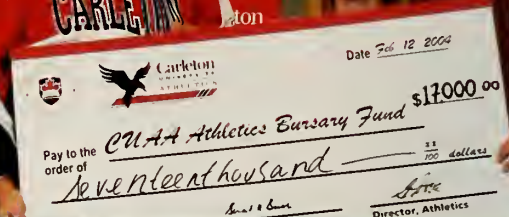 CARLETON
ton
Carleton
UNIVERSITY
ATHLETICS
Date Feb 12 2004
Pay to the order of CUAA Athletics Bursary Fund $17000 00
Seventeen thousand xx/100 dollars
Director, Athletics